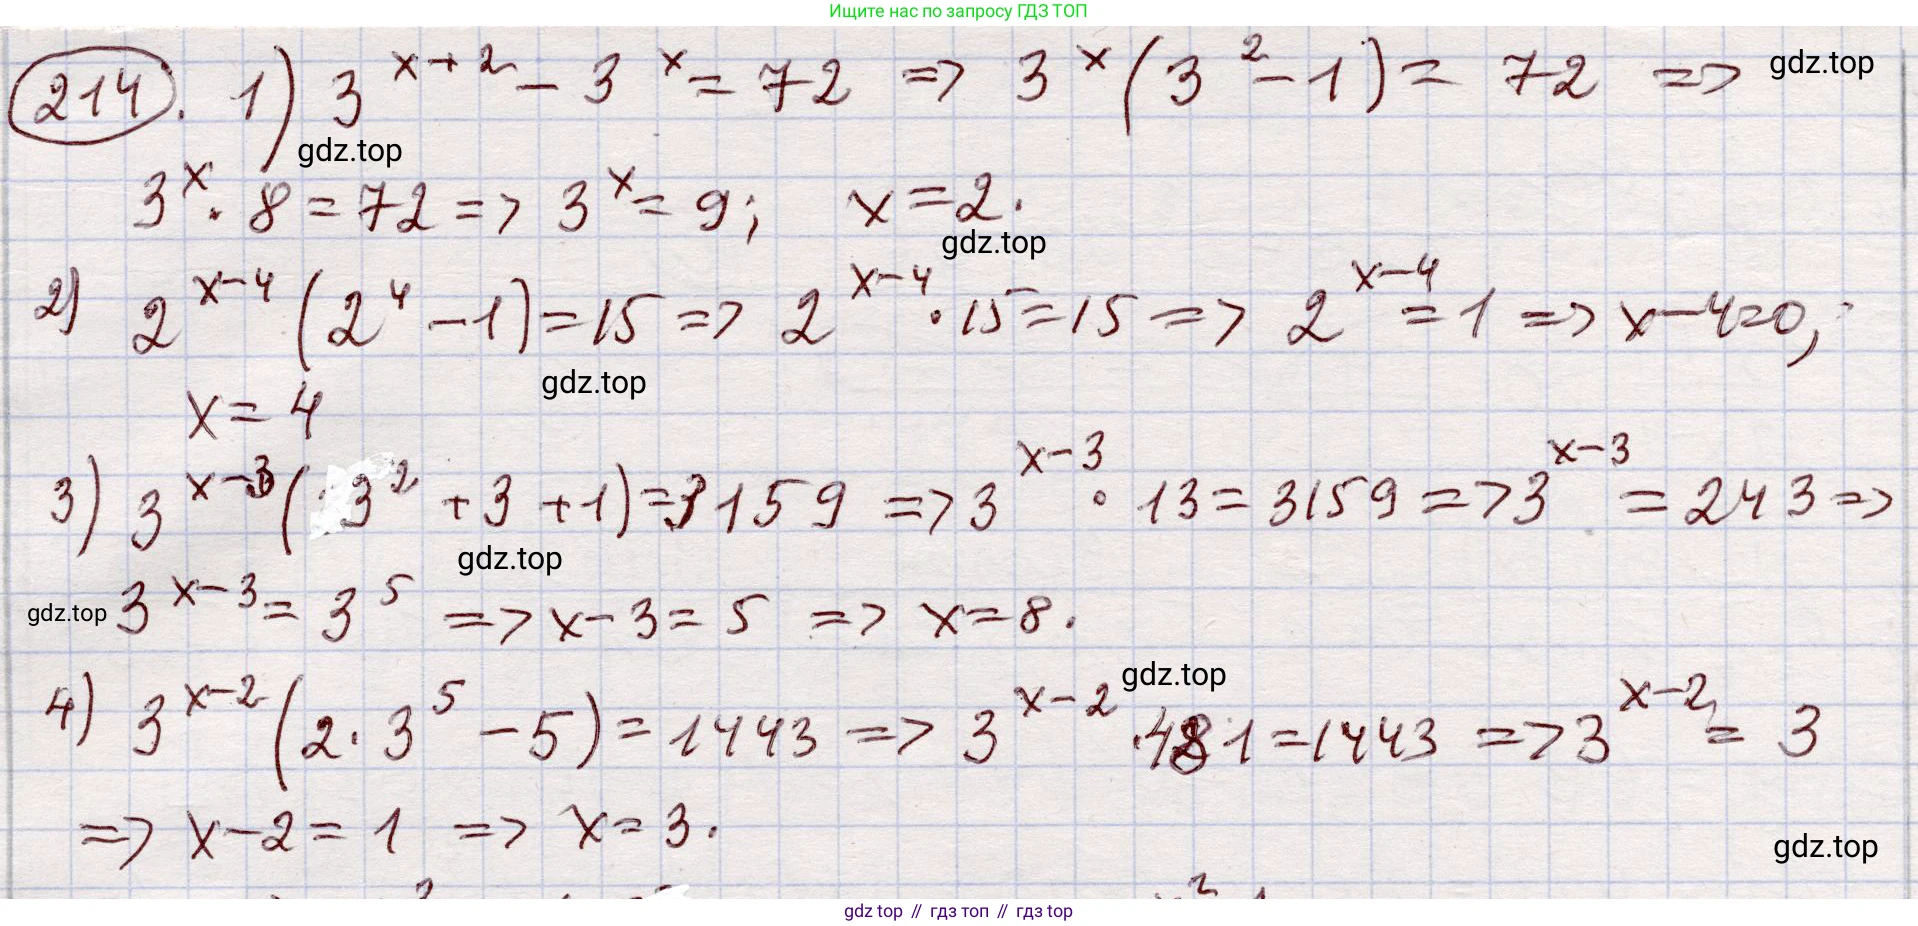 Ищите нас по запросу ГДЗ ТОП
214. 1) 3^(x+2) - 3^x = 72 => 3^x (3^2 - 1) = 72 => gdz.top
gdz.top
3^x · 8 = 72 => 3^x = 9; x = 2.
gdz.top
2) 2^(x-4) (2^4 - 1) = 15 => 2^(x-4) · 15 = 15 => 2^(x-4) = 1 => x-4=0;
gdz.top
x = 4
3) 3^(x-3) (3^2 + 3 + 1) = 3159 => 3^(x-3) · 13 = 3159 => 3^(x-3) = 243 =>
gdz.top
gdz.top 3^(x-3) = 3^5 => x-3 = 5 => x = 8.
gdz.top
4) 3^(x-2) (2·3^5 - 5) = 1443 => 3^(x-2) · 481 = 1443 => 3^(x-2) = 3
=> x-2 = 1 => x = 3.
gdz.top
gdz top // гдз топ // гдз top